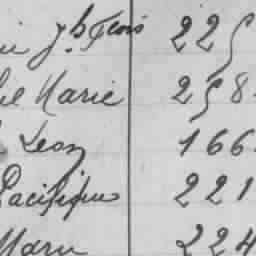 Jh Fcois 225
Marie 258
Leon 166
Pacifique 221
Marie 224